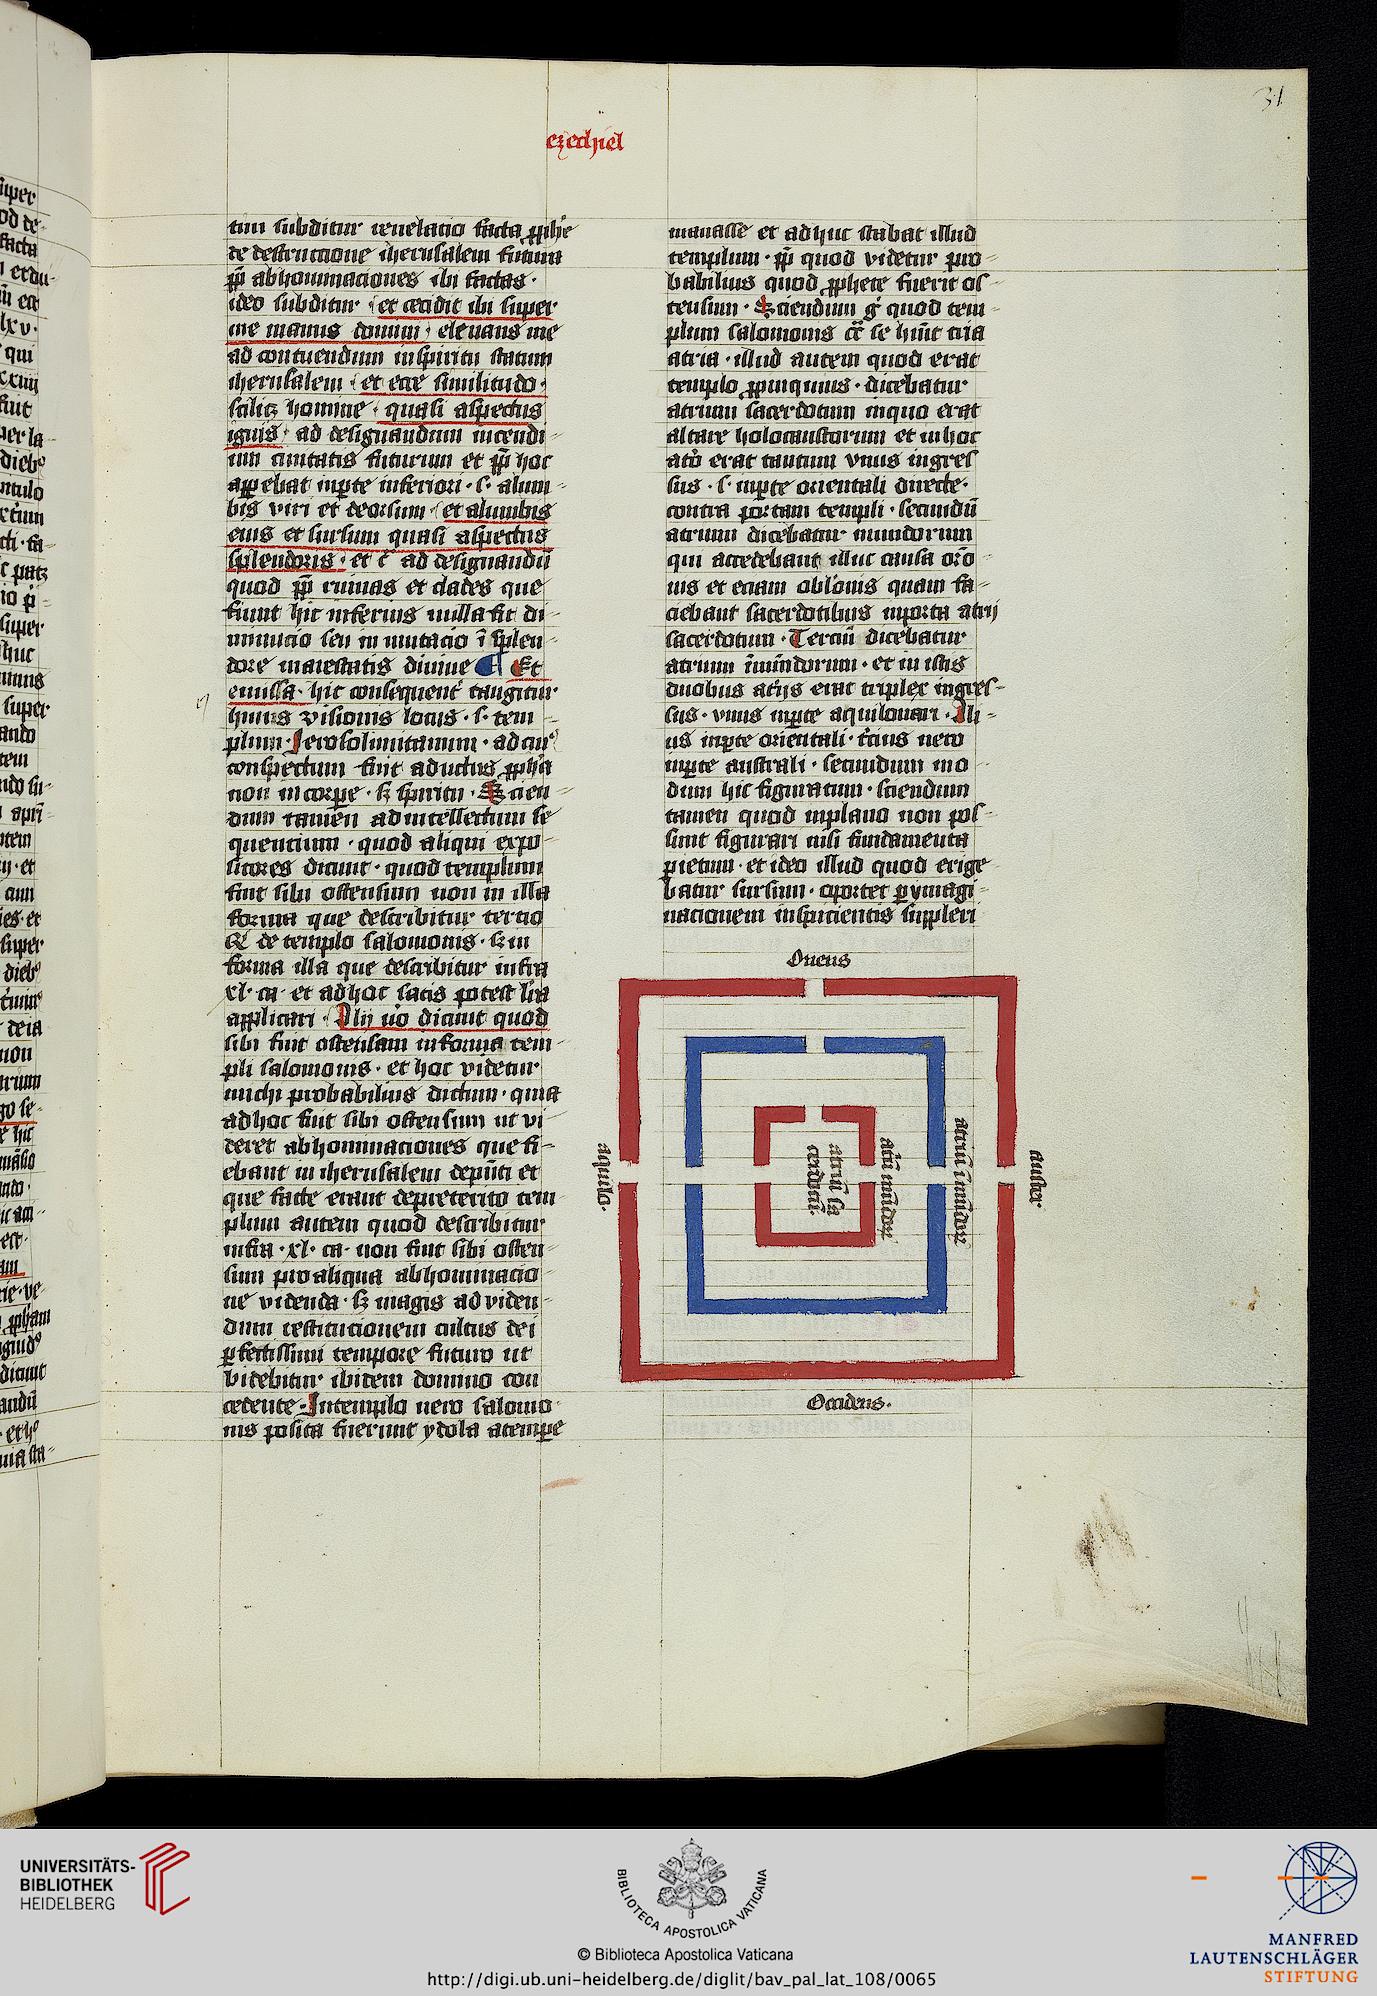 31
ezechiel
tim subditur reuelacio facta ꝓphē
de destructione iherusalem futura
ꝓꝑ abhominaciones ibi factas ·
ideo subditur · et cecidit ibi super
me manus domini · eleuans me
ad contuendum inspiritu statum
iherusalem · et ecce similitudo ·
scilicꝫ homine · quasi aspectus
ignis · ad designandum incendi
um ciuitatis futurum et ꝓꝑ hoc
apꝑebat inꝑte inferiori · s · a lum
bis viri et deorsum · et a lumbis
eius et sursum quasi aspectus
splendoris · et c̄ ad designandū
quod ꝓꝑ ruinas et clades que
fiunt hic inferius nulla fit di
minucio seu inmutacio ī splen
dore maiestatis diuine ¶ Et
emissa · hic consequent᷑ tangitur
huius visionis locus · s · tem
plum Jerosolimitanum · ad cuiꝰ
conspectum fuit aductus ꝓph̄a
non in corꝑe · sꝫ spiritu · Scien
dum tamen ad intellectum se
quentium · quod aliqui expo
sitores dicunt · quod templum
fuit sibi ostensum non in illa
forma que describitur tercio
de templo salomonis · sꝫ in
forma illa que describitur infra
xl · ca · et ad hoc satis potest lr̄a
applicari · Alij u͛o dicunt quod
sibi fuit ostensam in forma tem
pli salomonis · et hoc videtur
michi probabilius dictum · quia
ad hoc fuit sibi ostensum ut vi
deret abhominaciones que fi
ebant in iherusalem de pn̄ti et
que facte erant de preterito tem
plum autem quod describitur
infra · xl · ca · non fuit sibi osten
sum pro aliqua abhominacio
ne videnda · sꝫ magis ad viden
dum restitucionem cultus dei
ꝑfectissimi tempore futuro ut
videbitur ibidem domino con
cedente · In templo uero salomo
nis posita fuerunt ydola a tempe
manasse et adhuc stabat illud
templum · ꝓꝑ quod videtur pro
babilius quod ꝓphete fuerit os
tensum · Sciendum g͛ quod tem
plum salomonis c͛ca se hūit tria
atria · illud autem quod erat
templo ꝓpinquius · dicebatur
atrium sacerdotum in quo erat
altare holocaustorum et in hoc
at͛o erat tantum vnus ingres
sus · s · inꝑte orientali directe ·
contra portam templi · secundū
atrium dicebatur mundorum
qui accedebant illuc causa or̄o
nis et eciam obl̄onis quam fa
ciebant sacerdotibus in porta atrij
sacerdotum · Terciū dicebatur
atrium īmūndorum · et in istis
duobus at͛ijs erat triplex ingres
sus · vnus inꝑte aquilonari · Ali
us inꝑte orientali · t͛cius uero
inꝑte australi · secundum mo
dum hic figuratum · sciendum
tamen quod in plano non pos
sunt figurari nisi fundamenta
pietum · et ideo illud quod erige
batur sursum · oportet ꝑ ymagi
nacionem inspicientis suppleri
Oriens
aquilo ·
atriū sa
cerdotū ·
at͛ū mūdoꝝ
atriū īmūdoꝝ
auster ·
Occidens ·
UNIVERSITÄTS-
BIBLIOTHEK
HEIDELBERG
BIBLIOTECA APOSTOLICA VATICANA
© Biblioteca Apostolica Vaticana
http://digi.ub.uni-heidelberg.de/diglit/bav_pal_lat_108/0065
MANFRED
LAUTENSCHLÄGER
STIFTUNG